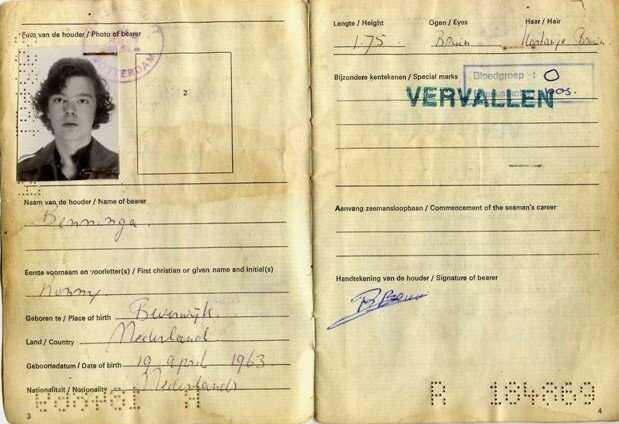 Foto van de houder / Photo of bearer
ROTTERDAM
2
Naam van de houder / Name of bearer
Benninga
Eerste voornaam en voorletter(s) / First christian or given name and Initial(s)
Geboren te / Place of birth Beverwijk
Land / Country Nederland
Geboortedatum / Date of birth 19 april 1963
Nationaliteit / Nationality Nederlands
3
Lengte / Height Ogen / Eyes Haar / Hair
1.75 Bruin Kastanje Bruin
Bijzondere kentekenen / Special marks
Bloedgroep : O
pos.
VERVALLEN
Aanvang zeemansloopbaan / Commencement of the seaman's career
Handtekening van de houder / Signature of bearer
R 184869
4